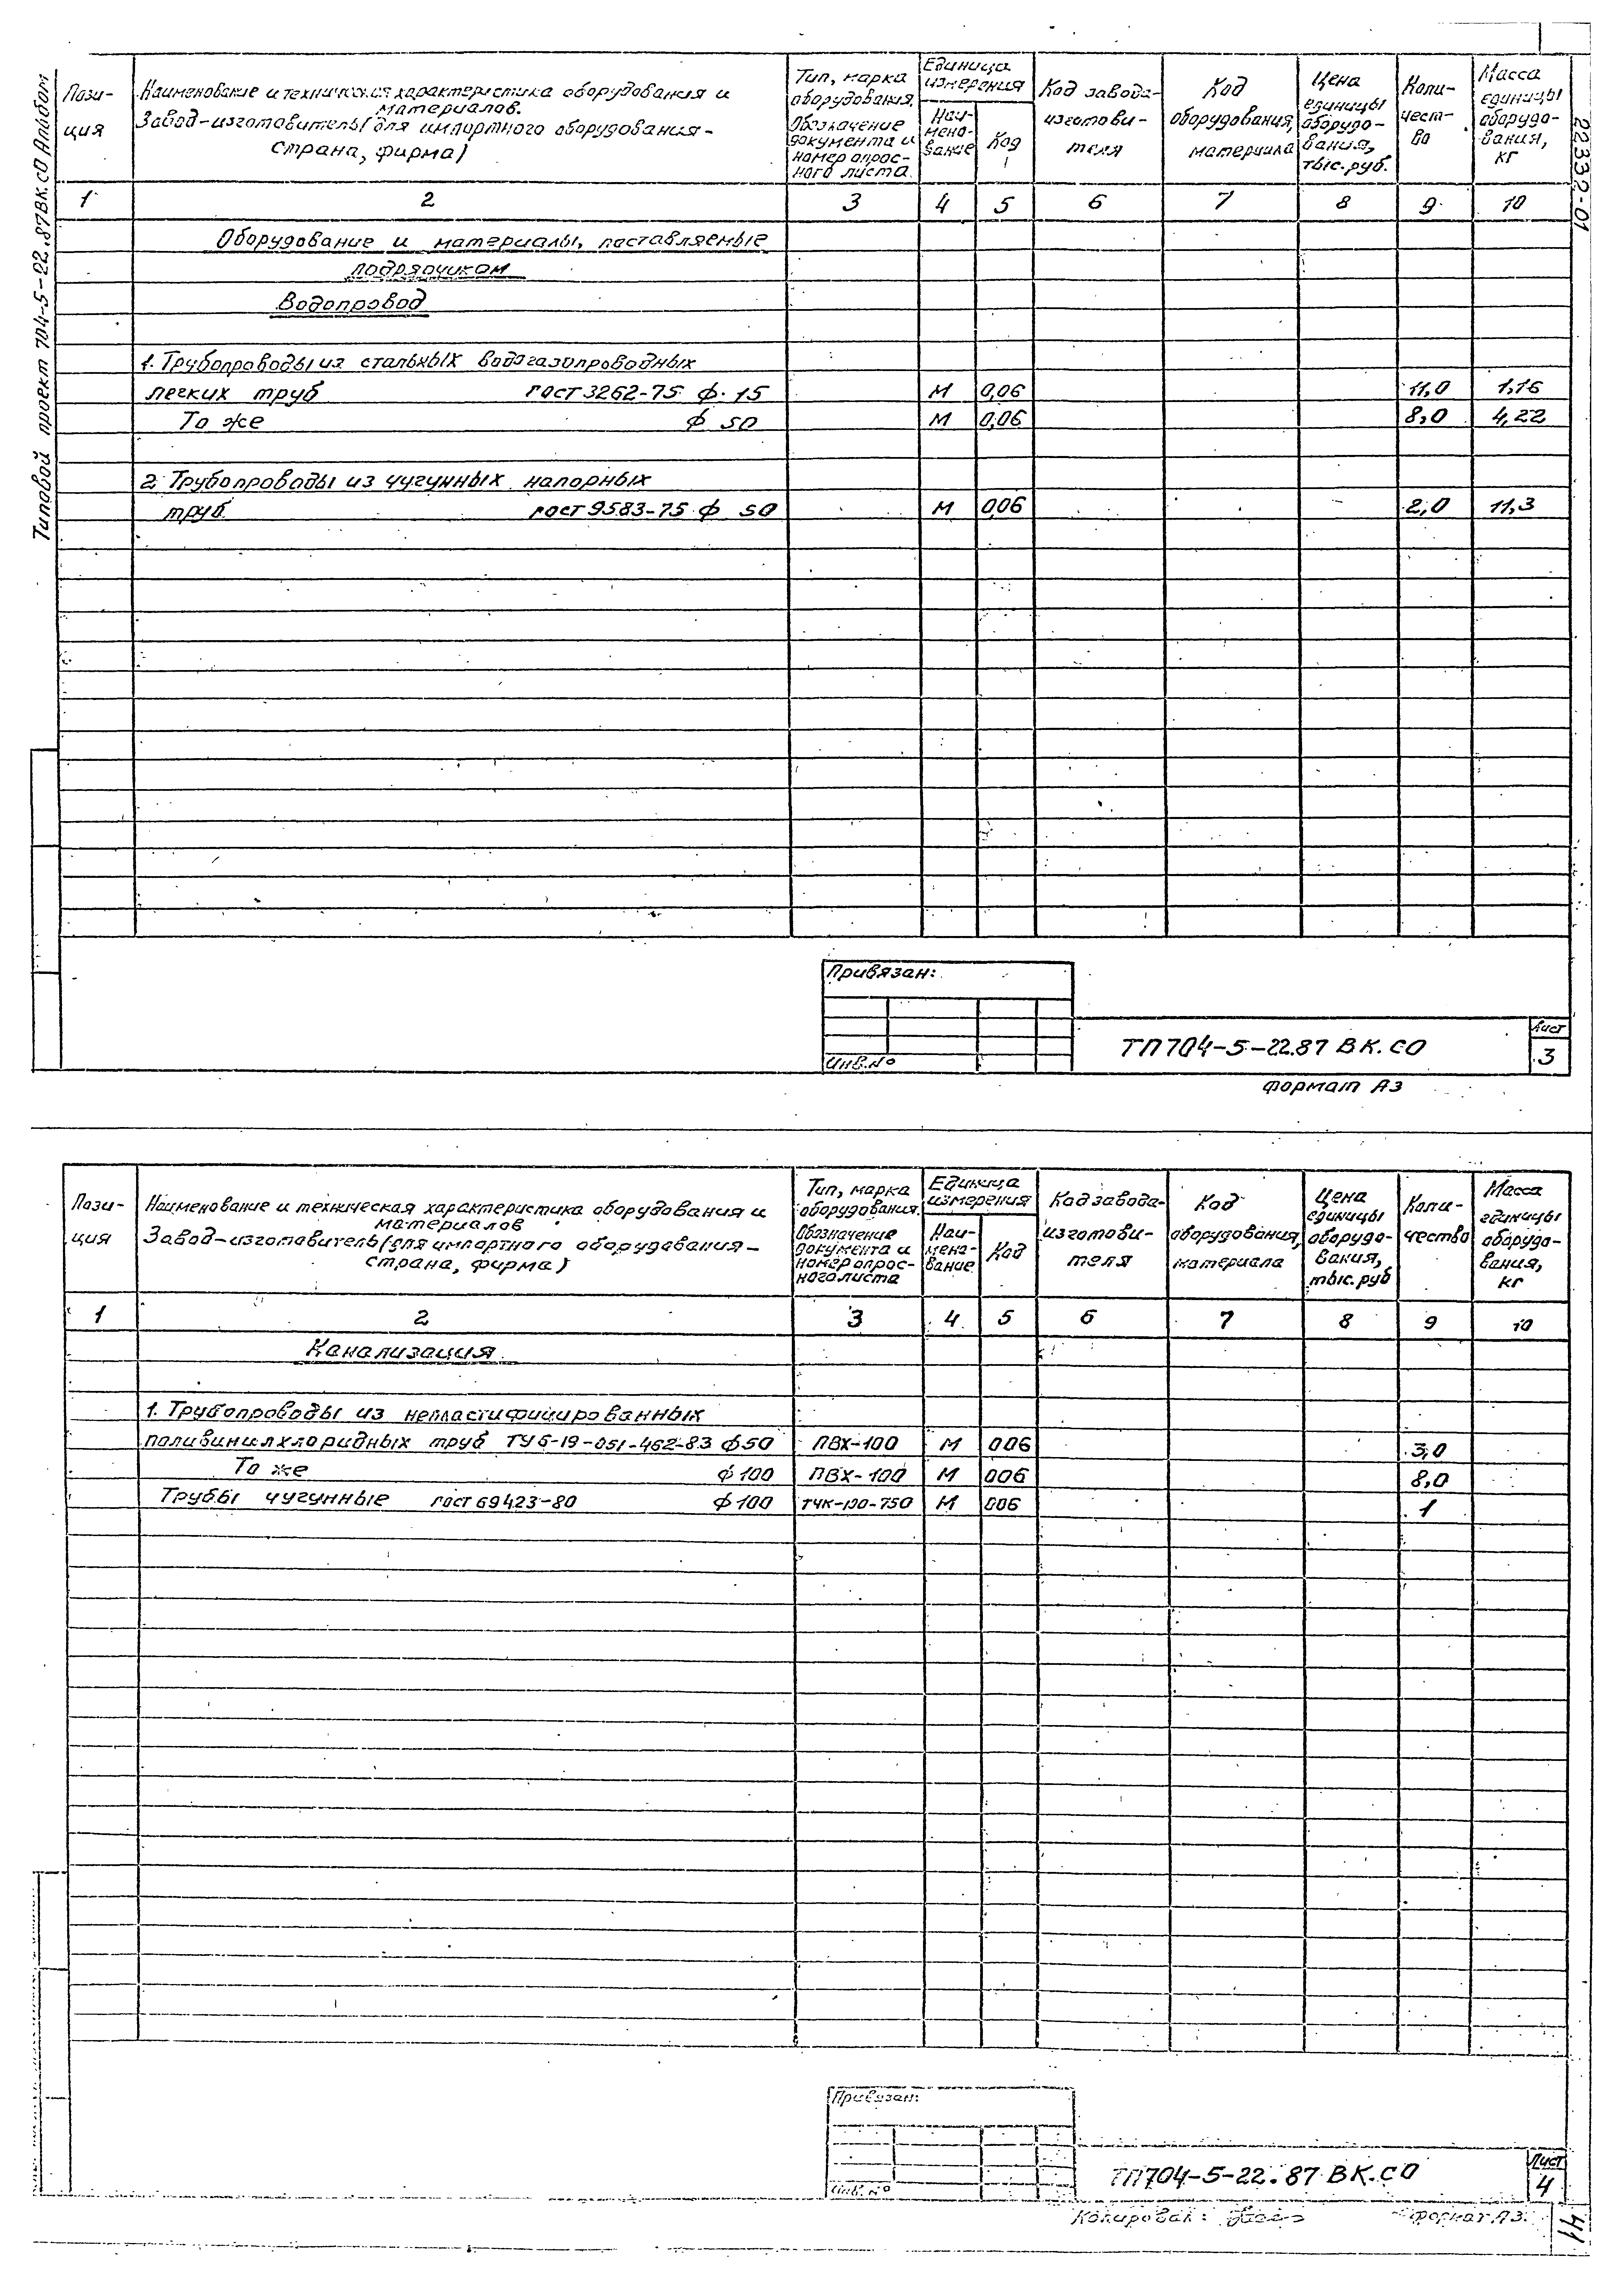 Типовой проект 704-5-22.87 ВК.СО Альбом
22332-01
Пози-
ция
Наименование и техническая характеристика оборудования и
материалов.
Завод-изготовитель (для импортного оборудования-
страна, фирма)
Тип, марка
оборудования.
Обозначение
документа и
номер опрос-
ного листа.
Единица
измерения
Наи-
мено-
вание
Код
Код завода-
изготови-
теля
Код
оборудования,
материала
Цена
единицы
оборудо-
вания,
тыс.руб.
Коли-
чест-
во
Масса
единицы
оборудо-
вания,
кг
1 2 3 4 5 6 7 8 9 10
Оборудование и материалы, поставляемые
подрядчиком
Водопровод
1. Трубопроводы из стальных водогазопроводных
легких труб ГОСТ 3262-75 ф 15 М 0,06 11,0 1,16
То же ф 50 М 0,06 8,0 4,22
2. Трубопроводы из чугунных напорных
труб ГОСТ 9583-75 ф 50 М 006 2,0 11,3
Привязан:
Инв.№
ТП 704-5-22.87 ВК.СО
Лист
3
Формат А3
Пози-
ция
Наименование и техническая характеристика оборудования и
материалов
Завод-изготовитель (для импортного оборудования-
страна, фирма)
Тип, марка
оборудования.
Обозначение
документа и
номер опрос-
ного листа
Единица
измерения
Наи-
мено-
вание
Код
Код завода-
изготови-
теля
Код
оборудования,
материала
Цена
единицы
оборудо-
вания,
тыс.руб
Коли-
чество
Масса
единицы
оборудо-
вания,
кг
1 2 3 4 5 6 7 8 9 10
Канализация
1. Трубопроводы из непластифицированных
поливинилхлоридных труб ТУ 6-19-051-462-83 ф50 ПВХ-100 М 006 3,0
То же ф 100 ПВХ-100 М 006 8,0
Трубы чугунные ГОСТ 69423-80 ф 100 ТЧК-100-750 М 006 1
Привязан:
Инв.№
ТП704-5-22.87 ВК.СО
Лист
4
Копировал:
Формат А3
41